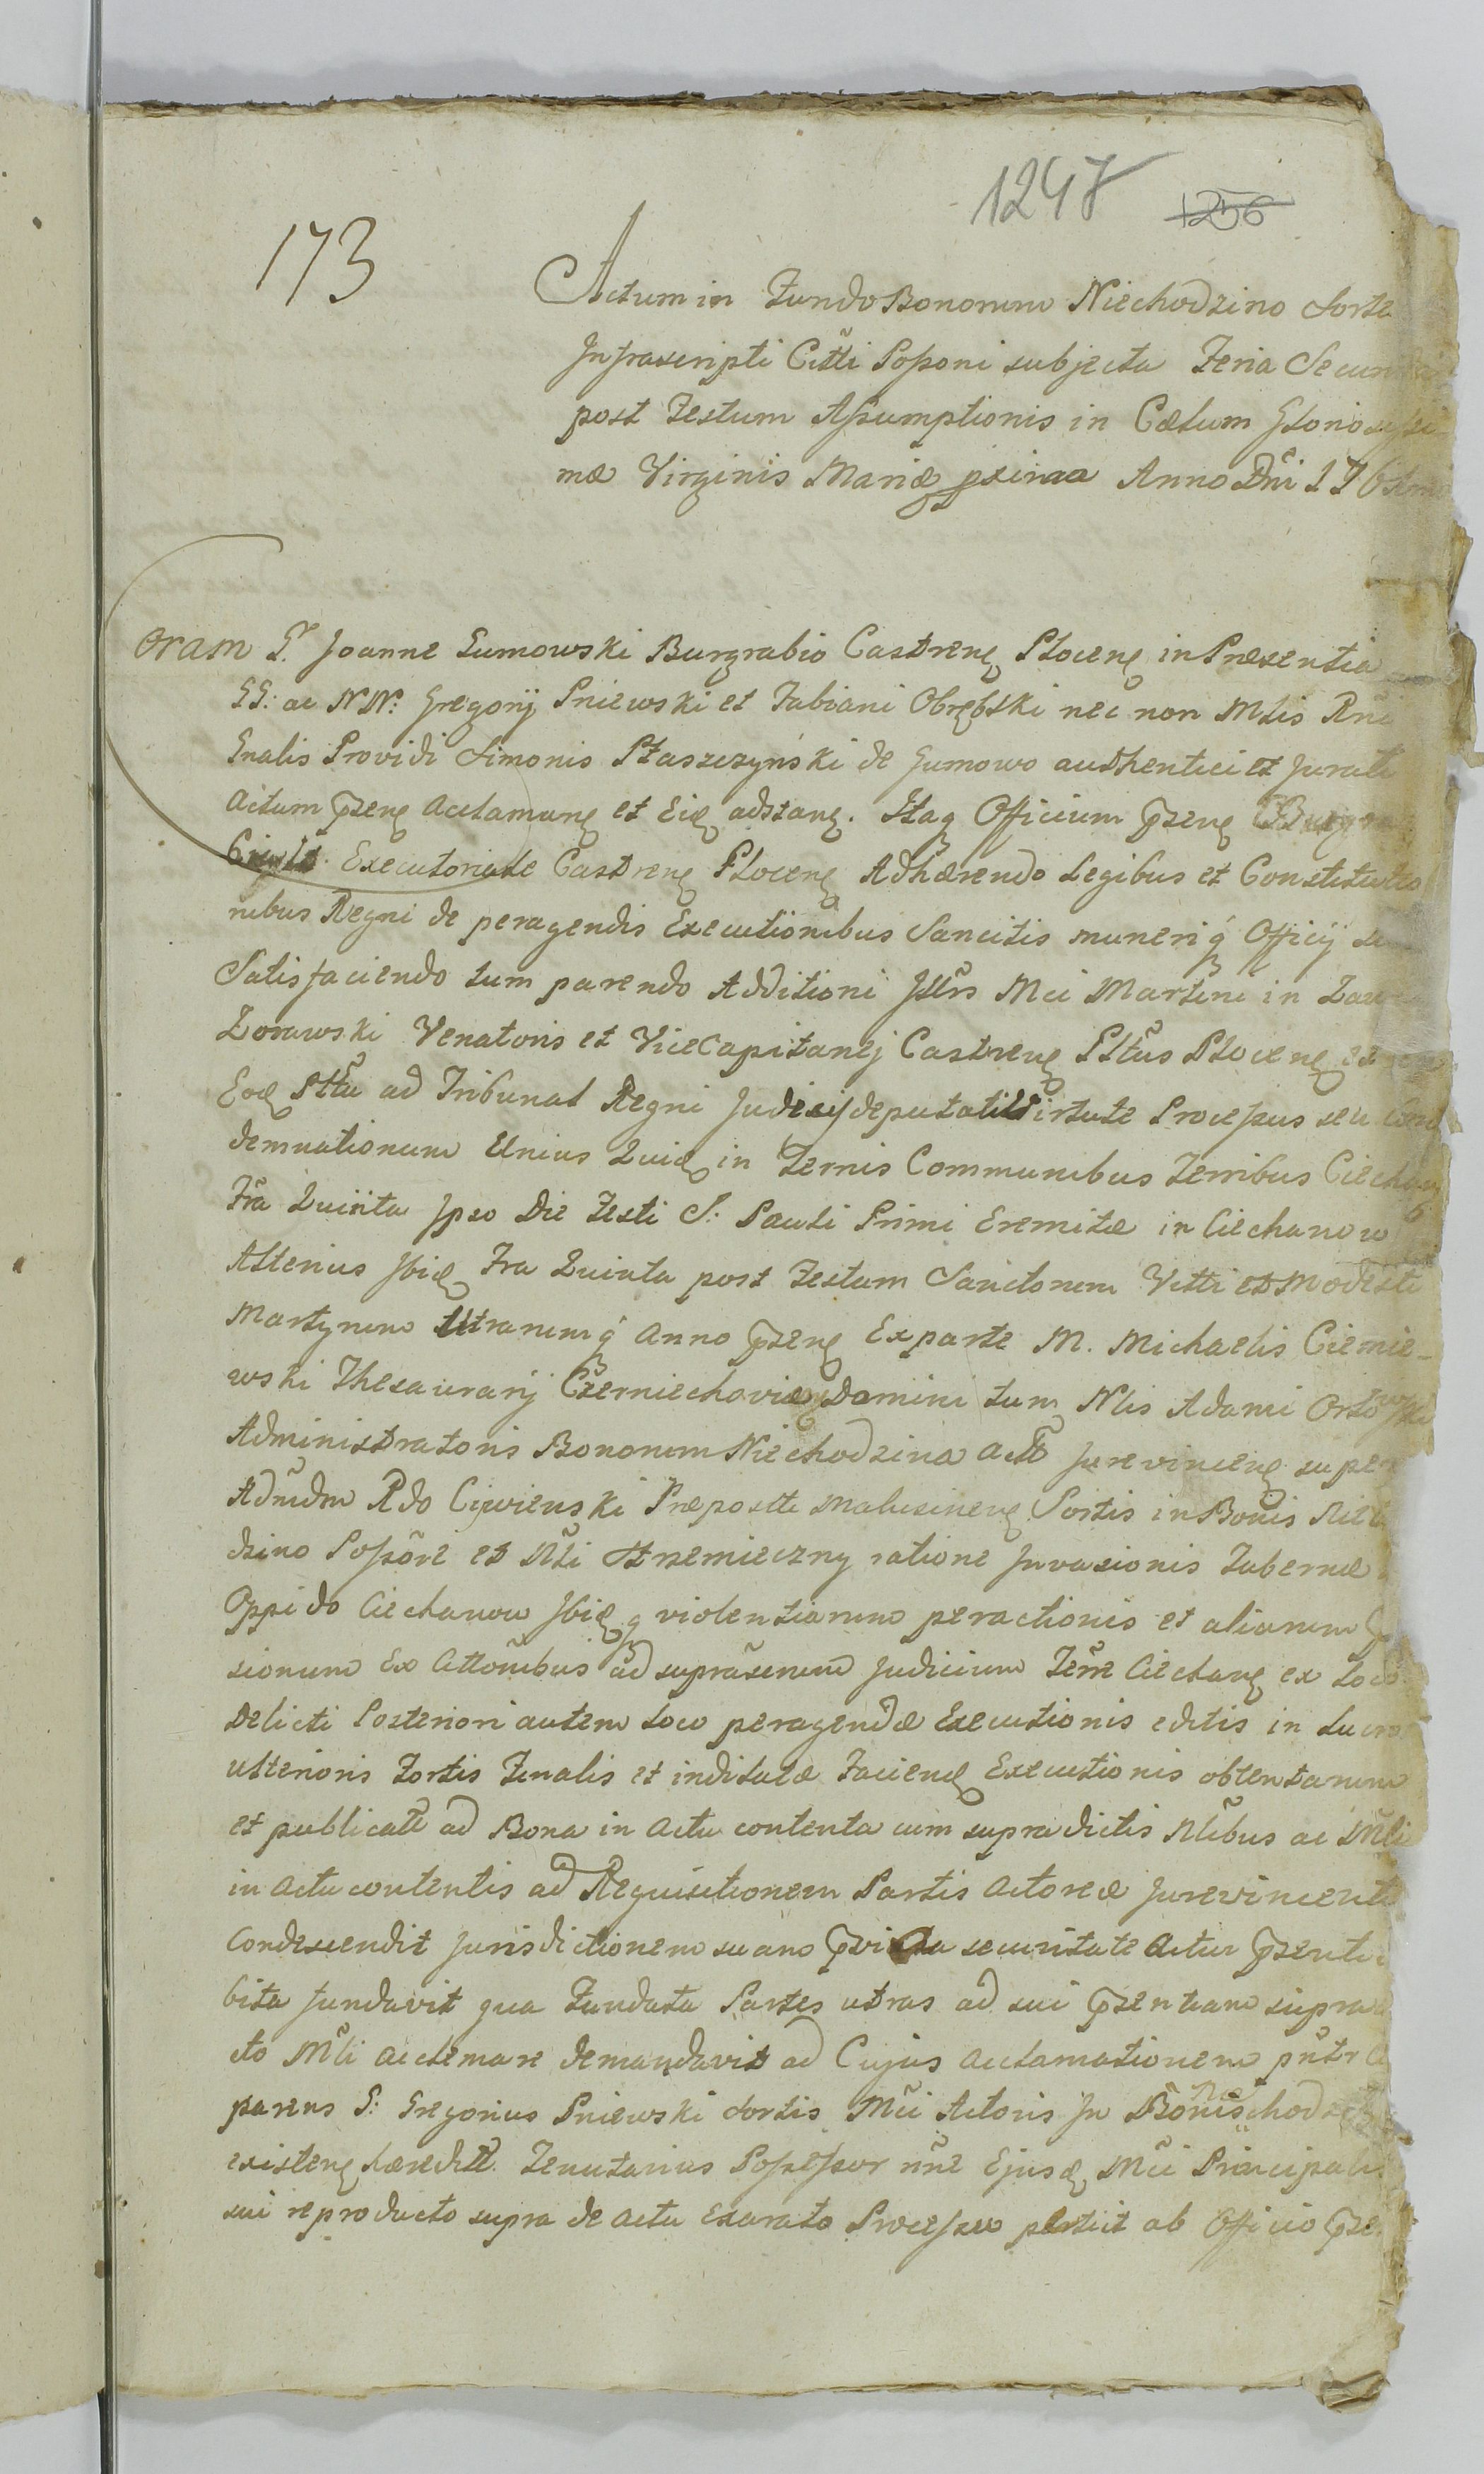 1247 1256
173
Actum in Fundo Bonorum Niechodzino Sorte
Infrascripti Citti Possori subjecta Feria Secun
post Festum Assumptionis in Cælum Glorio
mæ Virginis Mariæ pxima Anno Dni 176
Coram G. Joanne Sumowski Burgrabio Castren Plocen in Præsentia
GG: ac NN: Gregorij Pniewski et Fabiani Obrębski nec non Mlis Rni
Gnalis Providi Simonis Staszczyński de Gumowo authentici et Jurati
Actum pzen acclaman et Eid adstan. Itaq Officium pzen
Executoriale Castren Plocen Adhærendo Legibus et Constitutio
nibus Regni de peragendis Executionibus Sancitis muneriq Officij
Satisfaciendo tum parendo Additioni Illrs Mci Martini in
Zorawski Venatoris et ViceCapitanej Castren Pltus Plocen
Eod Pttu ad Tribunal Regni Judicij deputati Virtute Processus seu Con
demnationum Unius Quid in Ternis Communibus Terribus Ciechan
Fra Quinta Ipso Die Festi S: Pauli Primi Eremitæ in Ciechanow
Alterius Ibid Fra Quinta post Festum Sanctorum Vitti et Modesti
Martyrum Utrarumq Anno pzen Ex parte M. Michaelis Ciemie-
wski Thesaurarij Czerniechovien Domini tum Nlis Adami Orłowski
Administratoris Bonorum Niechodzina Actt Jurevincen super
Adrndm Rdo Cywienski Præpostti Malusinen Sortis in Bonis Nie
dzino Possõre et Nli Strzemieczny ratione Invasionis Tabernæ
Oppido Ciechanow Ibidq violentiarum peractionis et aliarum
sionum Ex Attõnibus ad suprãserium Judicium Terre Ciechan ex Loco
Delicti Posteriori autem Loco peragendæ Executionis editis in Lucro
ulterioris Fortis Finalis et inditatæ Facien Executionis obtentarum
et publicatt ad Bona in Actu contenta cum supradictis Nlibus ac Mli
in Actu contentis ad Requisitionem Partis Actoreæ Jurevincent
Condescendit Jurisdictionem suam pvi securitate Actui pzenti
bita fundavit qua Fundata Partes utras ad sui pzentiam supra
cto Mli acclemare demandavit ad Cujus acclamationem
parens G: Gregorius Pniewski Sortis Mci Actoris In Bonis Niechodz
existen hæreditt. Tenutarius Possessor nne Ejusd Mci Principalis
sui reproducto supra de actu Exarato Processu petiit ab Officio pze